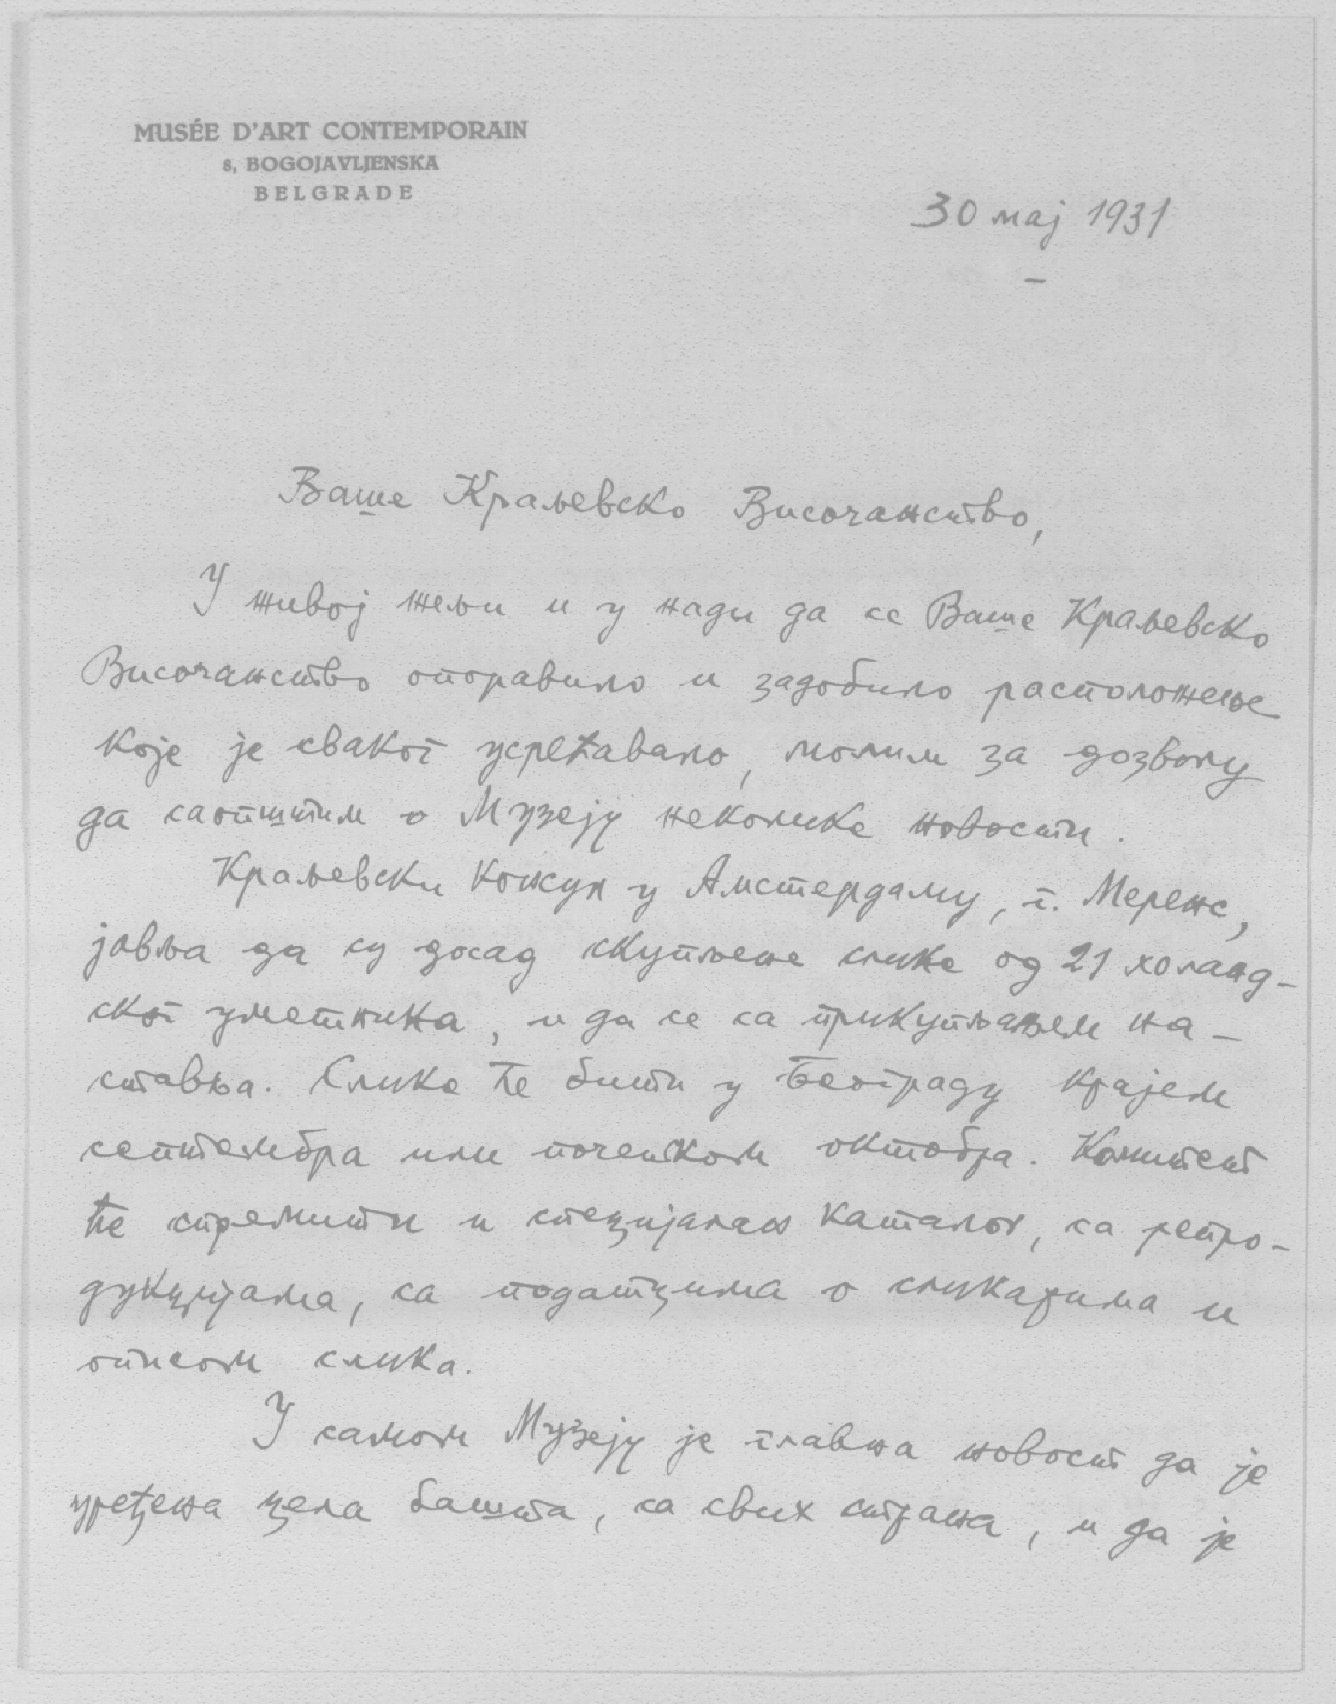 MUSÉE D'ART CONTEMPORAIN
8, BOGOJAVLJENSKA
BELGRADE
30 мај 1931
–
Ваше Краљевско Височанство,
У живој жељи и у нади да се Ваше Краљевско
Височанство опоравило и задобило расположење
које је сваког усрећавало, молим за дозволу
да саопштим о Музеју неколике новости.
Краљевски конзул у Амстердаму, г. Меренс,
јавља да су досад скупљене слике од 21 холанд-
ског уметника, и да се са прикупљањем на-
ставља. Слике ће бити у Београду крајем
септембра или почетком октобра. Комитет
ће спремити и специјалан каталог, са репро-
дукцијама, са подацима о сликарима и
описом слика.
У самом Музеју је главна новост да је
уређена цела башта, са свих страна, и да је